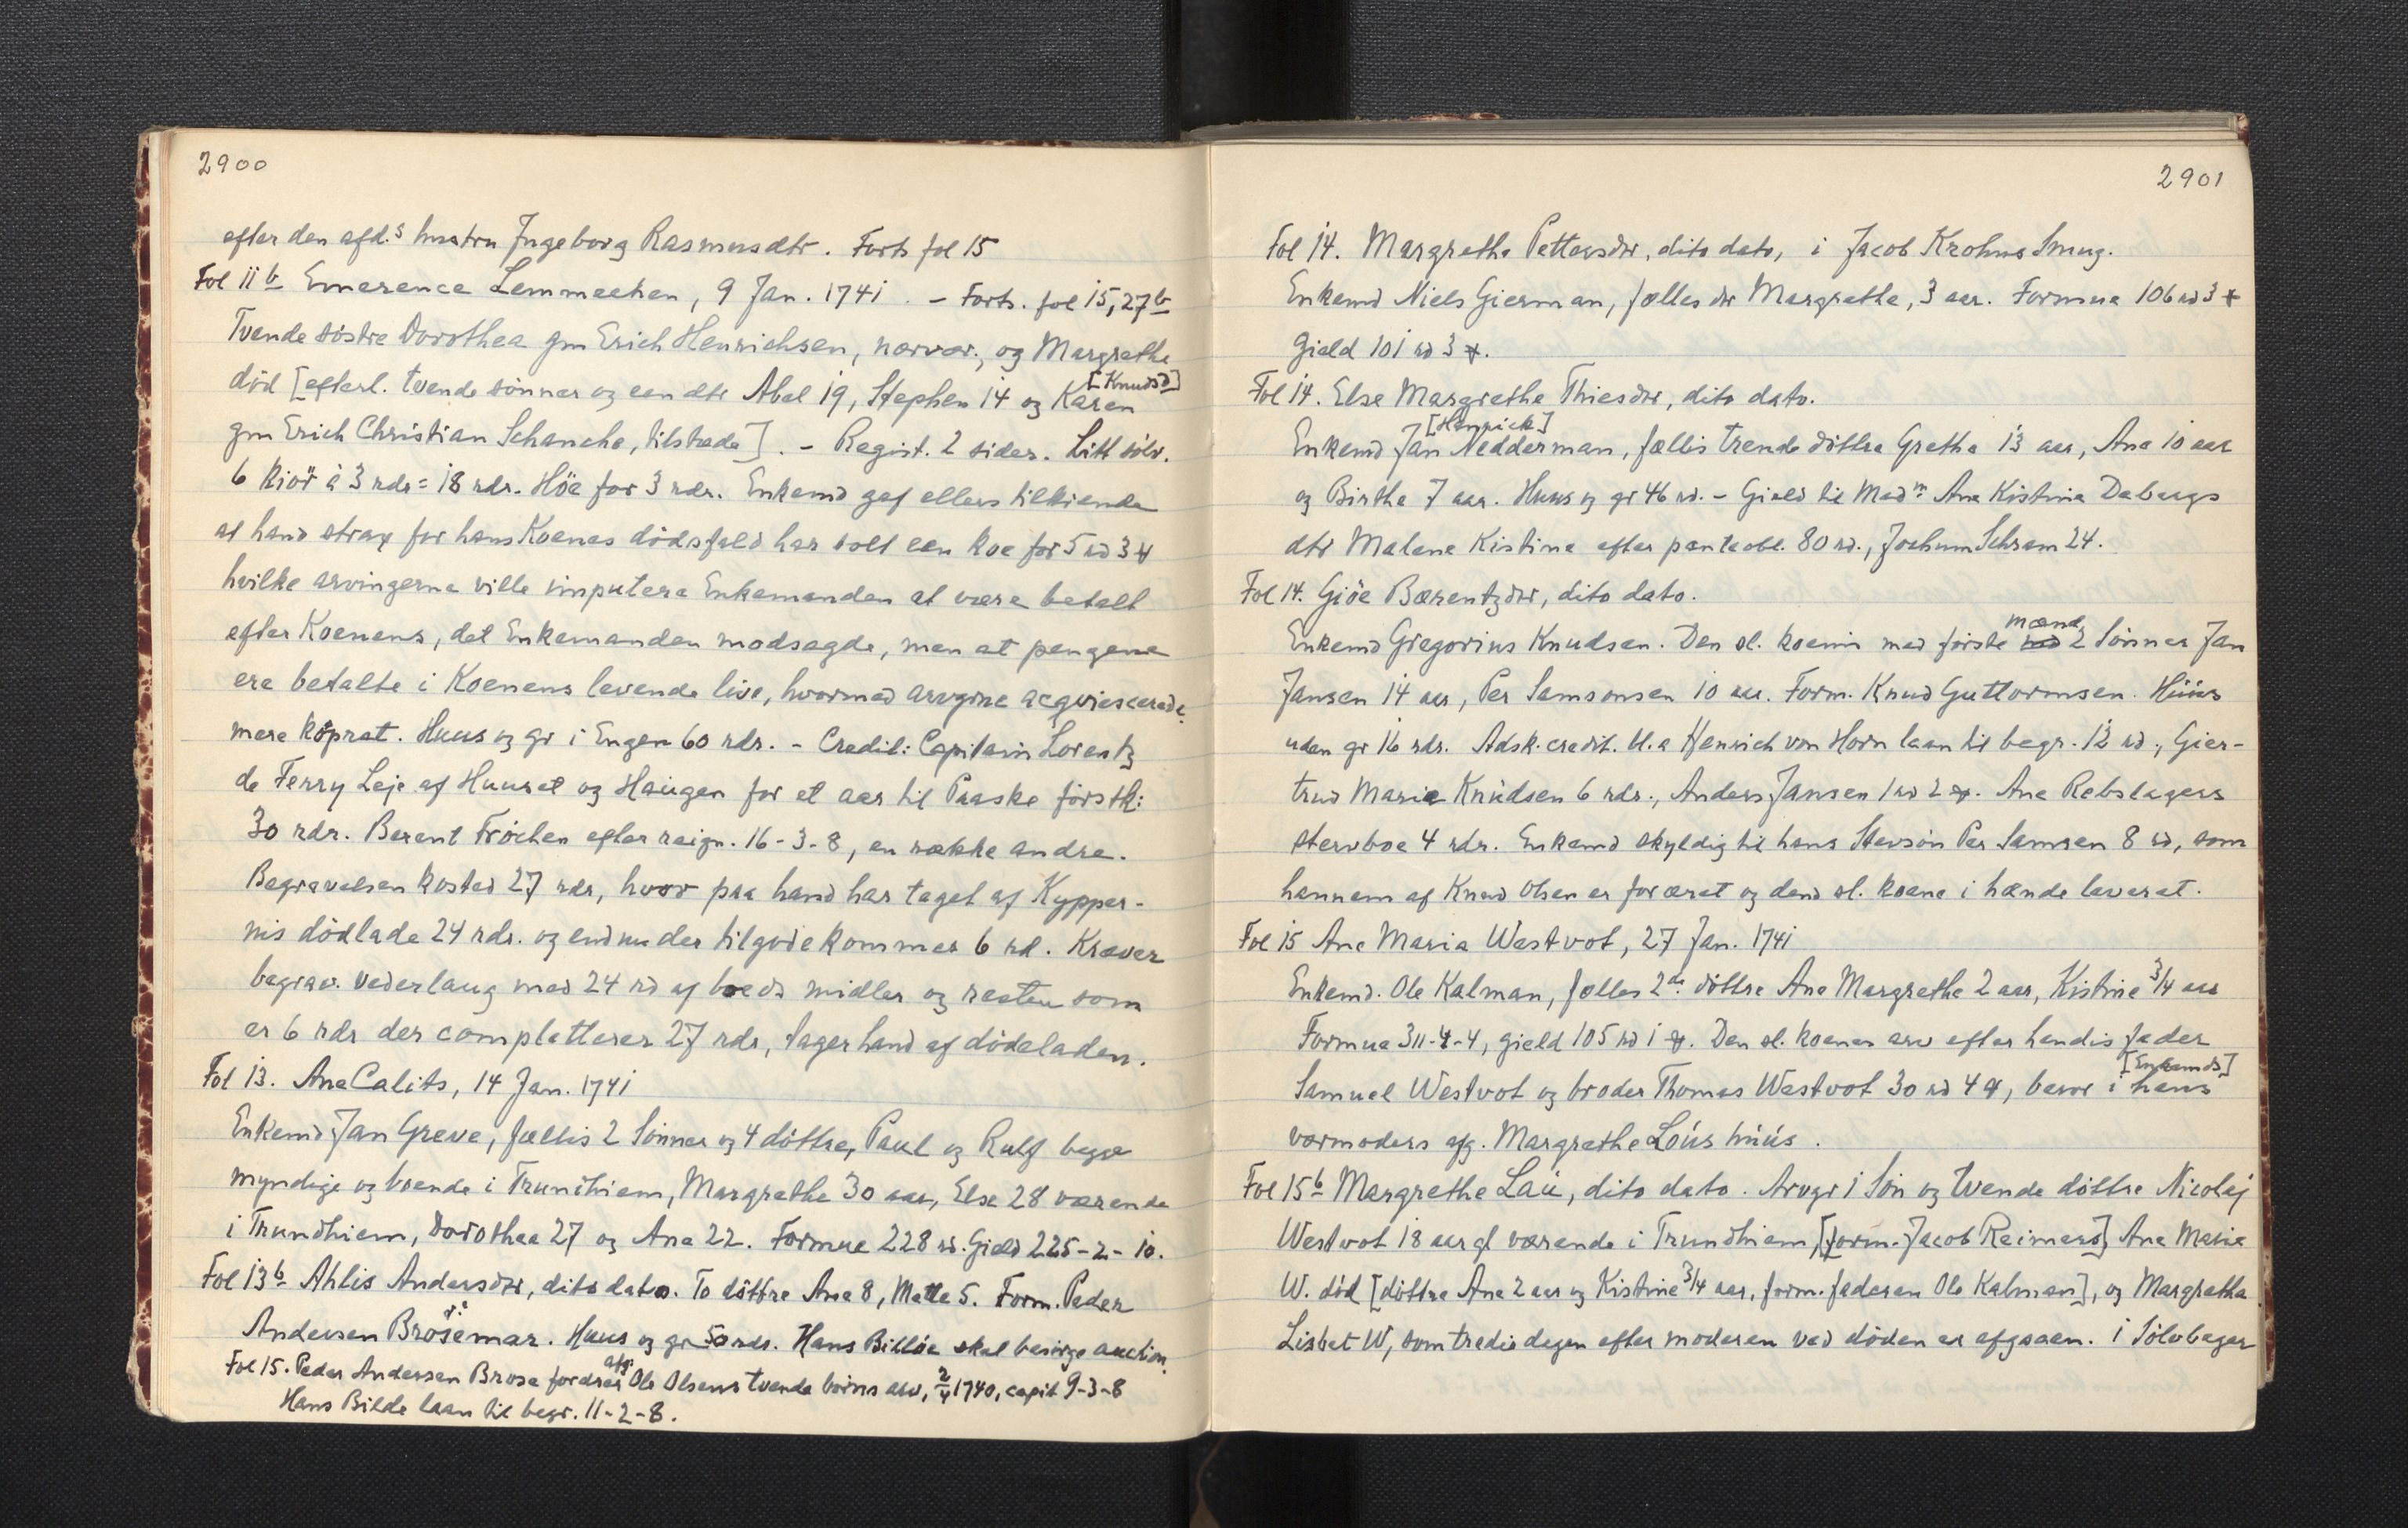 2900
efter den afd.s hustru Ingeborg Rasmusdtr. Forts fol 15
Fol 11b Emerence Lemmechen, 9 Jan. 1741. - Forts. fol 15, 27b
Tvende söstre Dorothea gm Erich Henrichsen, nærvær., og Margrethe
död [efterl. tvende sönner og een dtr Abel 19, Stephen 14 og Karen [Knudsd]
gm Erich Christian Schanche, tilstæde]. - Regist. 2 sider. Litt sölv.
6 kiör à 3 rdr = 18 rdr. Höe for 3 rdr. Enkemd gaf ellers tilkiende
at hand strax for hans Koenes dödsfald har solt een koe for 5 rd 3
hvilke arvingerne ville imputere Enkemanden at være betalt
efter Koenens, det Enkemanden modsagde, men at pengene
ere betalte i Koenens levende live, hvormed arvgrne acqviescerede.
mere köprat. Huus og gr i Engen 60 rdr. - Credit: Capitain Lorentz
de Ferry Leje af Huuset og Haugen for et aar til Paaske förstk:
30 rdr. Berent Fröchen efter reign. 16-3-8, en række andre.
Begravelsen kosted 27 rdr, hvor paa hand har taget af Kypper-
nis dödlade 24 rdr. og endnu der tilgode kommer 6 rd. Kræver
begrav. vederlaug med 24 rd af boeds midler og resten som
er 6 rdr der completterer 27 rdr, tager hand af dödeladen.
Fol 13. Ane Calits, 14 Jan. 1741
Enkemd Jan Greve, fællis 2 Sönner og 4 döttre, Paul og Rulf begge
myndige og boende i Trundhiem, Margrethe 30 aar, Else 28 værende
i Trundhiem, Dorothea 27 og Ane 22. Formue 228 rd. Gield 225-2-10.
Fol 13b Ahlis Andersdtr, dito dato. To döttre Ane 8, Mette 5. Form. Peder
Andersen Brosemar. Huus og gr 50 rdr. Hans Billöe skal besörge auction.
Fol 15. Peder Andersen Brose fordrer afg. Ole Olsens tvende börns arv, 2/4 1740, capit 9-3-8
Hans Bilde laan til begr. 11-2-8.
2901
Fol 14. Margrethe Pettersdtr, dito dato, i Jacob Krohns Smug.
Enkemd Niels Gierman, fælles dtr Margrethe, 3 aar. Formue 106 rd 3
Gield 101 rd 3
Fol 14. Else Margrethe Thiesdtr, dito dato.
Enkemd Jan [Henrick] Nedderman, fællis trende döttre Grethe 13 aar, Ane 10 aar
og Birthe 7 aar. Huus og gr 46 rd. - Gield til Madm. Ane Kistine Debergs
dtr Malene Kistine efter panteobl. 80 rd., Jochum Schram 24.
Fol 14. Giöe Bærentzdtr, dito dato.
Enkemd Gregorius Knudsen. Den sl. koenis med förste mand 2 Sönner Jan
Jansen 14 aar, Per Samsonsen 10 aar. Form. Knud Guttormsen. Huus
uden gr 16 rdr. Adsk. credit. bl.a Henrich von Horn laan til begr. 12 rd., Gier-
trud Marie Knudsen 6 rdr., Anders Jansen 1 rd 2. Ane Rebslagers
stervboe 4 rdr. Enkemd skyldig til hans Stevsön Per Samsen 8 rd, som
hannem af Knud Olsen er foræret og dend sl. koene i hænde leveret.
Fol 15 Ane Maria Westvot, 27 Jan. 1741
Enkemd. Ole Kalman, fælles 2de döttre Ane Margrethe 2 aar, Kistine 3/4 aar
Formue 311-4-4, gield 105 rd 1. Den sl. koenes arv efter hendis fader
Samuel Westvot og broder Thomas Westvot 30 rd 4, beror i hans [Enkemds]
værmoders afg. Margrethe Loús húús.
Fol 15b Margrethe Laú, dito dato. Arvgr 1 Sön og tvende döttre Nicolaj
Westvot 18 aar gl værende i Trundhiem, [form. Jacob Reimers] Ane Marie
W. död [döttre Ane 2 aar og Kistine 3/4 aar, form. faderen Ole Kalman], og Margrethe
Lisbet W, som tredie dagen efter moderen ved döden er afgaaen. 1 Sölvbeger